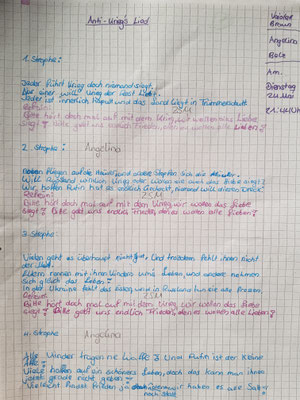 Anti-Kriegs Lied
Violett
Braun
Angelina
Am.
Dienstag
24 Mai
21:44 Uhr
1. Strophe:
Jeder führt Krieg doch niemand siegt.
einer will Krieg der Rest Liebt.
Jeder ist innerlich kaputt und das Land liegt in Trümmerschutt
Refrain: ZSM
Bitte hört doch mal auf mit dem Krieg, wir wollen das Liebe
siegt? Bitte gebt uns endlich Frieden, den es wollen alle Lieben?
2. Strophe: Angelina
fliegen auf die Häuser und andere Stopfen sich die
Will Russland wirklich Krieg oder wollen sie auch das Liebe siegt?
Wir hoffen Putin hat es endlich Gecheckt, niemand will diesen Dreck!
Refrain: ZSM
Bitte hört doch mal auf mit dem Krieg wir wollen das Liebe
siegt? Bitte gebt uns endlich Frieden, den es wollen alle Lieben?
3. Strophe:
Vielen geht es überhaupt nicht gut, und trotzdem fehlt ihnen nicht
der Mut.
Eltern rennen mit ihren Kindern und andere nehmen
sich gleich das Leben.
In der Ukraine fällt das Essen weg in Russland tun sie alle
Refrain: ZSM
Bitte hört doch mal auf mit dem Krieg wir wollen das Liebe
siegt? Bitte gebt uns endlich Frieden, den es wollen alle Lieben?
4. Strophe Angelina
Alle Kinder fragen nach und Putin ist der Keine
Viele hoffen auf ein schönes Leben, doch das kann man ihnen
gerade nicht geben
Vielleicht haben es wir Satt